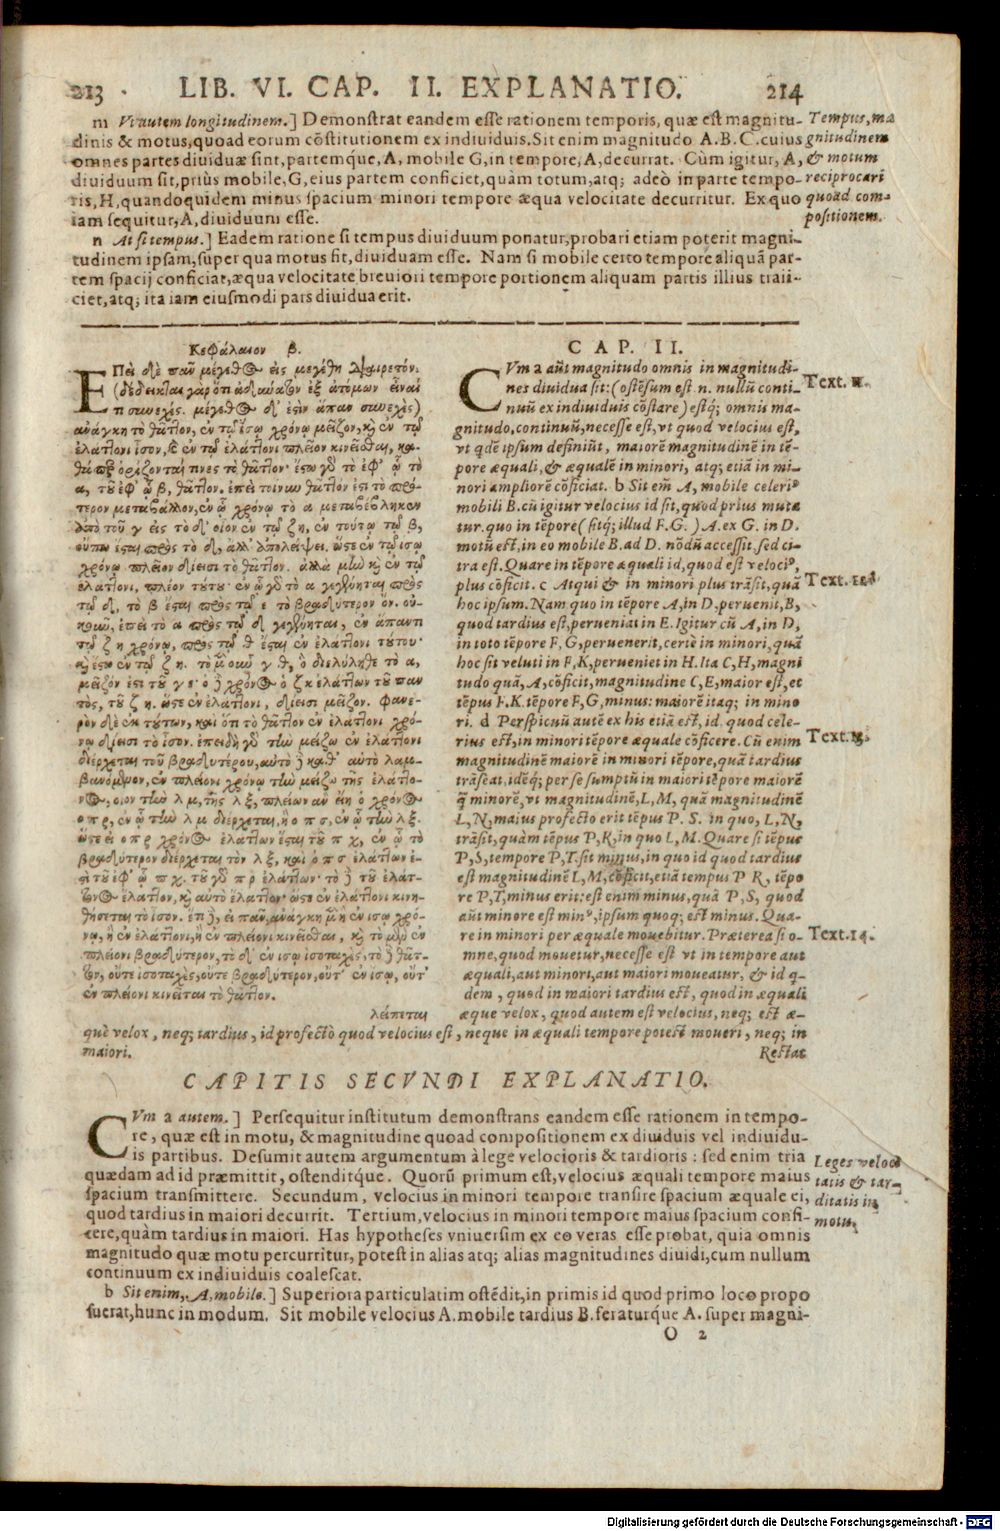 213 LIB. VI. CAP. II. EXPLANATIO. 214
m Vt autem longitudinem.] Demonstrat eandem esse rationem temporis, quæ est magnitu-
dinis & motus, quoad eorum cõstitutionem ex indiuiduis. Sit enim magnitudo A.B.C. cuius
omnes partes diuiduæ sint, partemque, A, mobile G, in tempore, A, decurrat. Cùm igitur, A,
diuiduum sit, priùs mobile, G, eius partem conficiet, quàm totum, atq; adeò in parte tempo-
ris, H, quandoquidem minus spacium minori tempore æqua velocitate decurritur. Ex quo
iam sequitur, A, diuiduum esse.
Tempus, ma
gnitudinem
& motum
reciprocari
quoad com-
positionem.
n At si tempus.] Eadem ratione si tempus diuiduum ponatur, probari etiam poterit magni-
tudinem ipsam, super qua motus fit, diuiduam esse. Nam si mobile certo tempore aliquã par-
tem spacij conficiat, æqua velocitate breuiori tempore portionem aliquam partis illius traii-
ciet, atq; ita iam eiusmodi pars diuidua erit.
Κεφάλαιον β.
ΕΠεὶ δὲ πᾶν μέγεθος εἰς μεγέθη διαιρετόν·
(δέδεικται γὰρ ὅτι ἀδύνατον ἐξ ἀτόμων εἶναί
τι συνεχές. μέγεθος δ' ἐςὶν ἅπαν συνεχὲς)
ἀνάγκη τὸ θᾶττον, ἐν τῷ ἴσῳ χρόνῳ μεῖζον, κỳ ἐν τῷ
ἐλάττονι ἴσον, κỳ ἐν τῷ ἐλάττονι πλεῖον κινεῖσθαι, κα-
θάπερ ὁρίζονταί τινες τὸ θᾶττον· ἔςω γὸ τὸ ἐφ' ᾧ τὸ
α, τοῦ ἐφ' ᾧ β, θᾶττον. ἐπεὶ τοίνυν θᾶττόν ἐςι τὸ πρό-
τερον μεταβάλλον, ἐν ᾧ χρόνῳ τὸ α μεταβέβληκεν
ἀπὸ τοῦ γ εἰς τὸ δ' οἷον ἐν τῷ ζη, ἐν τούτῳ τὸ β,
οὔπω ἔςαι πρὸς τὸ δ, ἀλλ' ἀπολείψει. ὥςε ἐν τῷ ἴσῳ
χρόνῳ πλεῖον δίεισι τὸ θᾶττον. ἀλλὰ μὴν κỳ ἐν τῷ
ἐλάττονι, πλέον τούτου· ἐν ᾧ γὸ τὸ α γεγένηται πρὸς
τῷ δ, τὸ β ἔςαι πρὸς τῷ ε τὸ βραδύτερον ὄν. οὐ-
κοῦν, ἐπεὶ τὸ α πρὸς τῷ δ γεγένηται, ἐν ἅπαντι
τῷ ζη χρόνῳ, πρὸς τῷ θ ἔςαι ἐν ἐλάττονι τούτου·
κỳ ἔςω ἐν τῷ ζη. τὸ μὲν οὖν γθ, ὃ διελήλυθε τὸ α,
μεῖζόν ἐςι τοῦ γε· ὁ ἢ χρόνος ὁ ζκ ἐλάττων τοῦ παν
τὸς, τοῦ ζη. ὥςε ἐν ἐλάττονι, δίεισι μεῖζον. φανε-
ρὸν δὲ ἐκ τούτων, καὶ ὅτι τὸ θᾶττον ἐν ἐλάττονι χρό-
νῳ δίεισι τὸ ἴσον. ἐπειδὴ γὸ τὴν μείζω ἐν ἐλάττονι
διέρχεται τοῦ βραδυτέρου, αὐτὸ ἢ καθ' αὑτὸ λαμ-
βανόμενον, ἐν πλείονι χρόνῳ τὴν μείζω τῆς ἐλάττο-
νος, οἷον τὴν λμ, τῆς λξ, πλείων ἂν εἴη ὁ χρόνος
ὁ πρ, ἐν ᾧ τὴν λμ διέρχεται, ἢ ὁ πσ, ἐν ᾧ τὴν λξ.
ὥςε εἰ ὁ πρ χρόνος ἐλάττων ἔςαι τοῦ πχ, ἐν ᾧ τὸ
βραδύτερον διέρχεται τὸν λξ, καὶ ὁ πσ ἐλάττων ἔ-
ςι τοῦ ἐφ' ᾧ πχ. τοῦ γὸ πρ ἐλάττων· τὸ ἢ τοῦ ἐλάτ-
τονος ἔλαττον, κỳ αὐτὸ ἔλαττον· ὥςε ἐν ἐλάττονι κινη-
θήσεται τὸ ἴσον. ἔτι ἢ, εἰ πᾶν, ἀνάγκη ἢ ἐν ἴσῳ χρό-
νῳ, ἢ ἐν ἐλάττονι, ἢ ἐν πλείονι κινεῖσθαι, κỳ τὸ μὲν ἐν
πλείονι βραδύτερον, τὸ δ' ἐν ἴσῳ ἰσοταχὲς, τὸ ἢ θᾶτ-
τον, οὔτε ἰσοταχὲς, οὔτε βραδύτερον, οὔτ' ἐν ἴσῳ, οὔτ'
ἐν πλείονι κινεῖται τὸ θᾶττον.
λείπεται
CAP. II.
CVm a aũt magnitudo omnis in magnitudi-
nes diuidua sit: (ostẽsum est. n. nullũ conti-
nuũ ex indiuiduis cõstare) estq́; omnis ma-
gnitudo, continuũ, necesse est, vt quod velocius est,
vt qdẽ ipsum definiũt, maiorẽ magnitudinẽ in tẽ-
pore æquali, & æqualẽ in minori, atq; etiã in mi-
nori ampliorẽ cõficiat. b Sit em̃ A, mobile celeriꝰ
mobili B. cũ igitur velocius id sit, quod priùs muta
tur. quo in tẽpore (sitq; illud F.G.) A. ex G. in D.
motũ est, in eo mobile B. ad D. nõdũ accessit. sed ci-
tra est. Quare in tẽpore æquali id, quod est velociꝰ,
plus cõficit. c Atqui & in minori plus trãsit, quã
hoc ipsum. Nam quo in tẽpore A, in D, peruenit, B,
quod tardius est, perueniat in E. Igitur cũ A, in D,
in toto tẽpore F, G, peruenerit, certè in minori, quã
hoc sit veluti in F, K, perueniet in H. Ita C, H, magni
tudo quã, A, cõficit, magnitudine C, E, maior est, et
tẽpus F. K. tẽpore F, G, minus: maiorẽ itaq; in mino
ri. d Perspicuũ autẽ ex his etiã est, id. quod cele-
rius est, in minori tẽpore æquale cõficere. Cũ enim
magnitudinẽ maiorẽ in minori tẽpore, quã tardius
trãseat, idẽq; per se sumptũ in maiori tẽpore maiorẽ
q̃ minorẽ, vt magnitudinẽ, L, M, quã magnitudinẽ
L, N, maius profecto erit tẽpus P. S. in quo, L, N,
trãsit, quàm tẽpus P, R, in quo L, M. Quare si tẽpus
P, S, tempore P, T. sit minus, in quo id quod tardius
est magnitudinẽ L, M, cõficit, etiã tempus P R, tẽpo
re P, T, minus erit: est enim minus, quã P, S, quod
aũt minore est minꝰ, ipsum quoq; est minus. Qua-
re in minori per æquale mouebitur. Præterea si o-
mne, quod mouetur, necesse est vt in tempore aut
æquali, aut minori, aut maiori moueatur, & id q-
dem, quod in maiori tardius est, quod in æquali
æque velox, quod autem est velocius, neq; est æ-
Text. 11.
Text. 12.
Text. 13.
Text. 14.
què velox, neq; tardius, id profectò quod velocius est, neque in æquali tempore potest moueri, neq; in
maiori.
Restat
CAPITIS SECVNDI EXPLANATIO.
CVm a autem.] Persequitur institutum demonstrans eandem esse rationem in tempo-
re, quæ est in motu, & magnitudine quoad compositionem ex diuiduis vel indiuidu-
is partibus. Desumit autem argumentum à lege velocioris & tardioris: sed enim tria
quædam ad id præmittit, ostenditq́ue. Quorũ primum est, velocius æquali tempore maius
spacium transmittere. Secundum, velocius in minori tempore transire spacium æquale ei,
quod tardius in maiori decurrit. Tertium, velocius in minori tempore maius spacium confi-
cere, quàm tardius in maiori. Has hypotheses vniuersim ex eo veras esse probat, quia omnis
magnitudo quæ motu percurritur, potest in alias atq; alias magnitudines diuidi, cum nullum
continuum ex indiuiduis coalescat.
Leges veloci
tatis & tar-
ditatis in
motu.
b Sit enim, A, mobile.] Superiora particulatim ostẽdit, in primis id quod primo loco propo
suerat, hunc in modum. Sit mobile velocius A. mobile tardius B. feraturq́ue A. super magni-
O 2
Digitalisierung gefördert durch die Deutsche Forschungsgemeinschaft - DFG